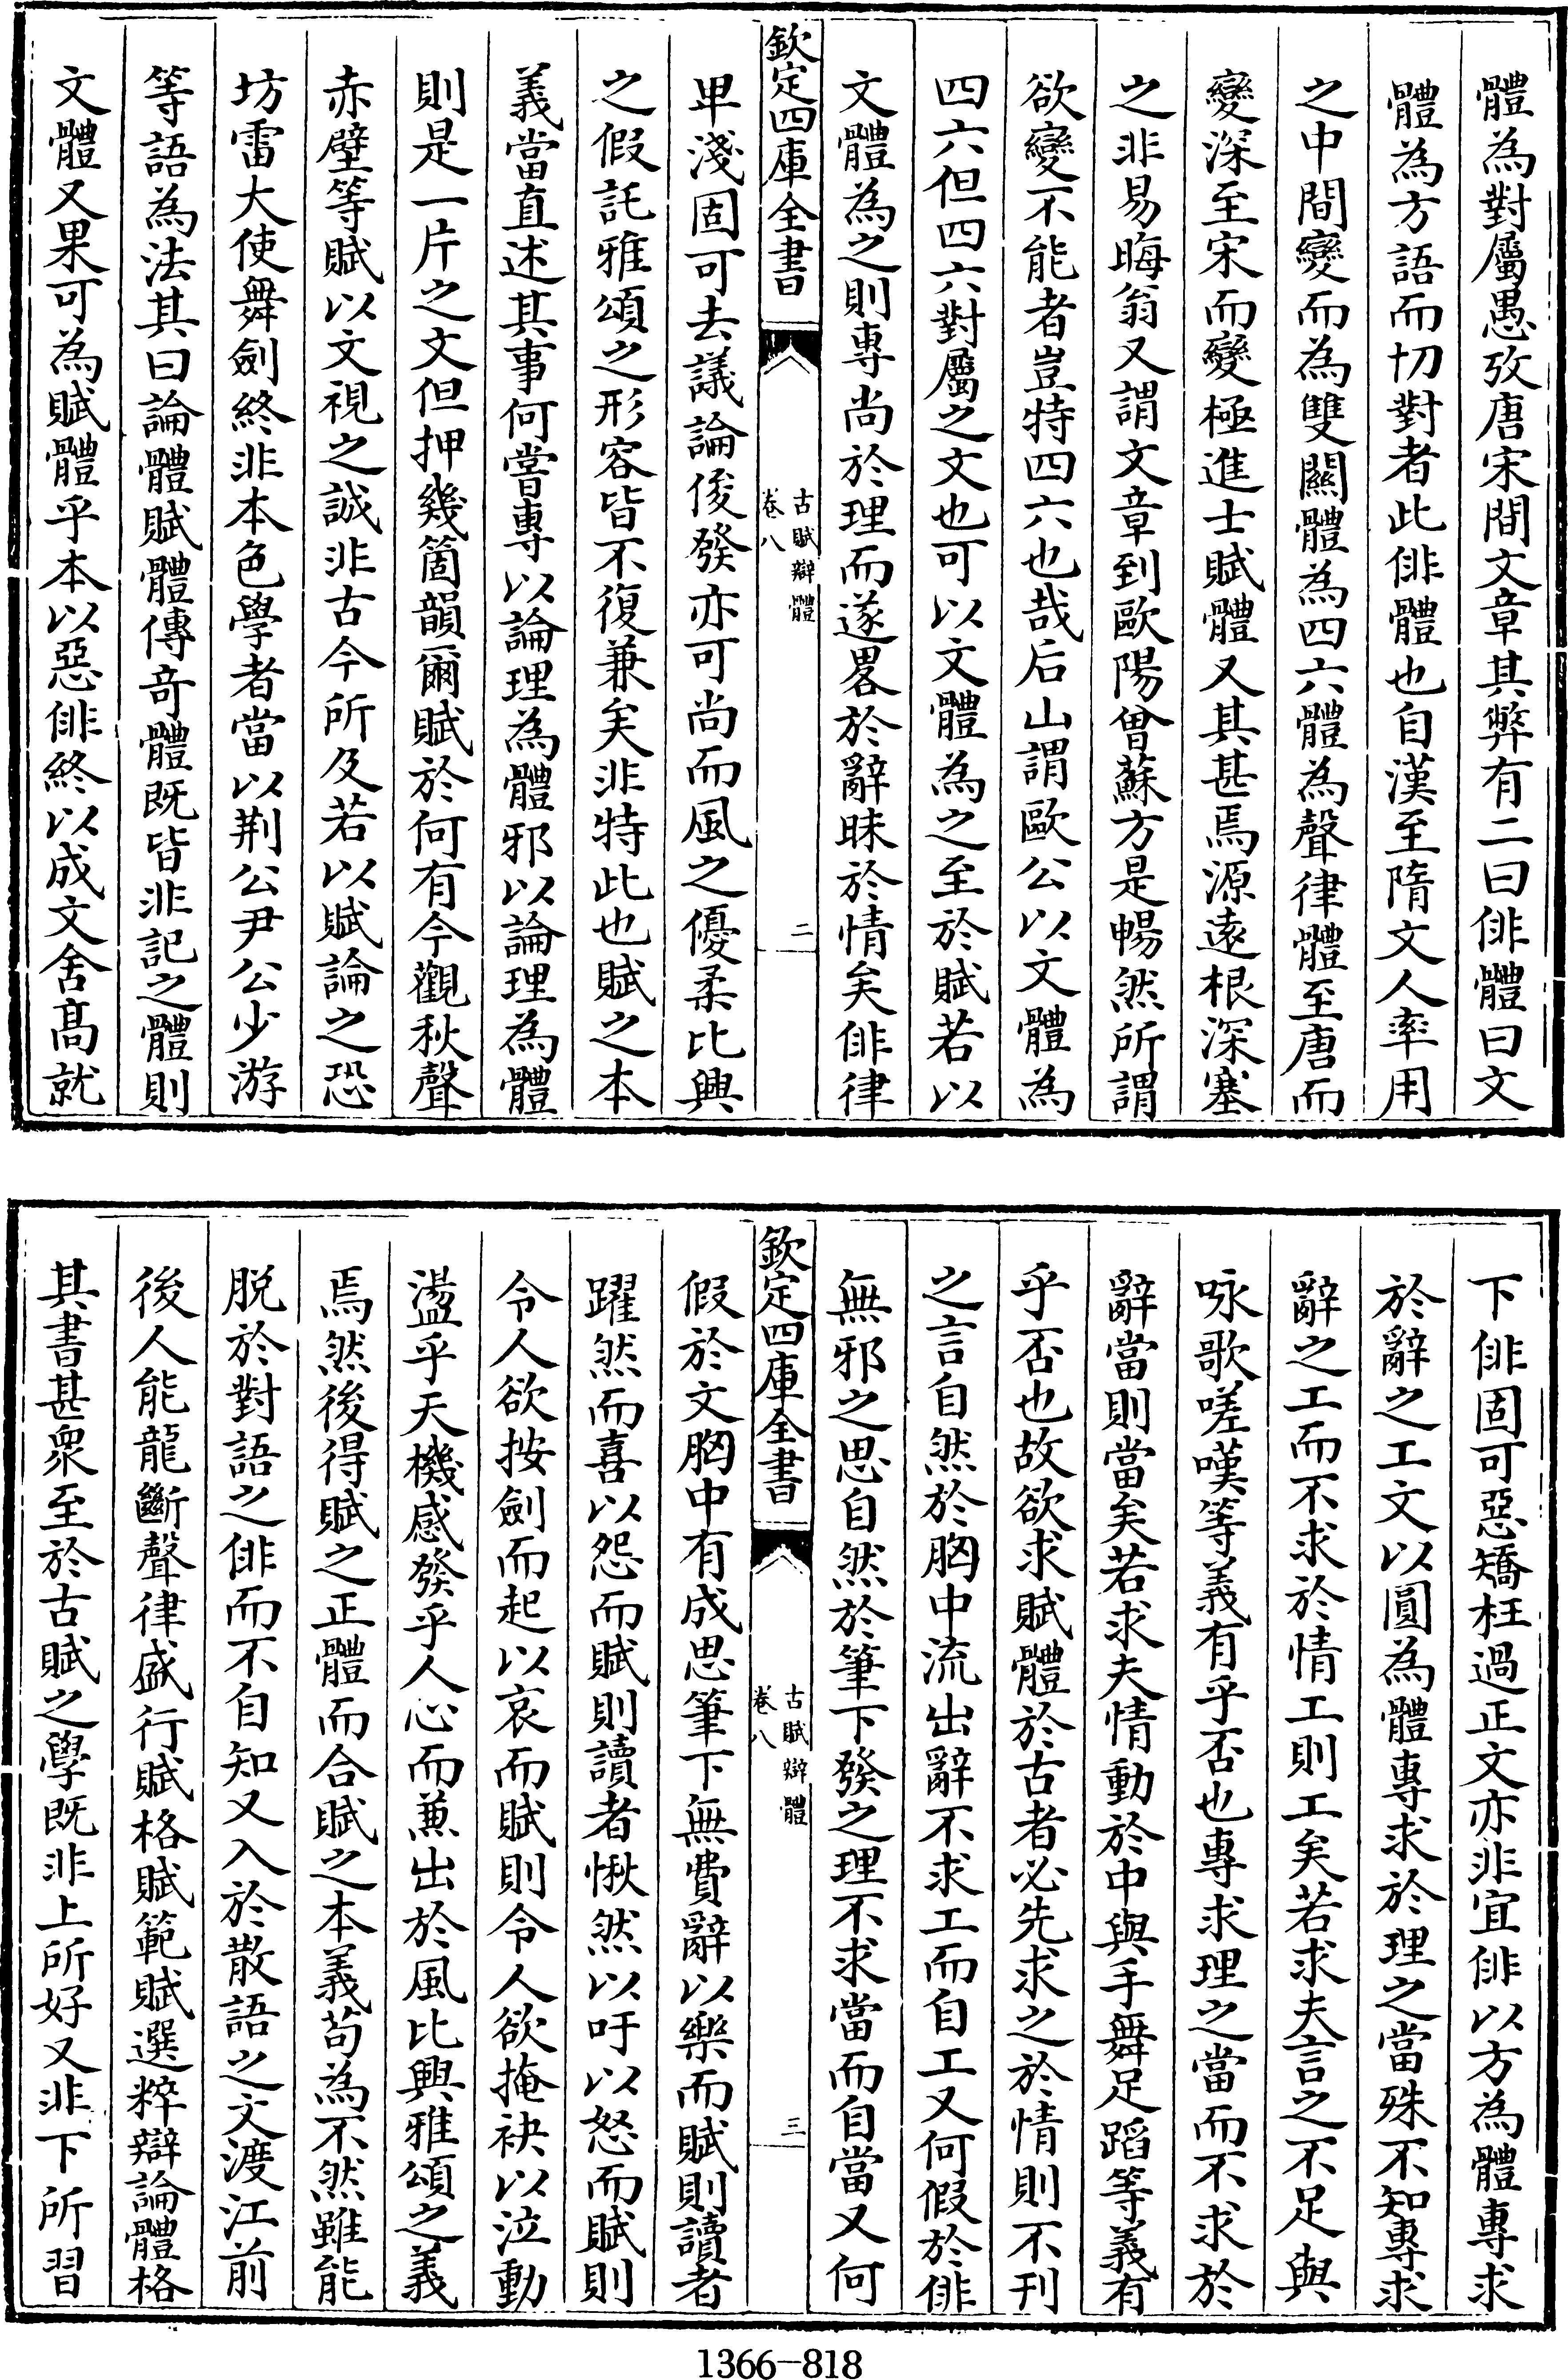 體為對屬愚攷唐宋間文章其弊有二曰俳體曰文
體為方語而切對者此俳體也自漢至隋文人率用
之中間變而為雙關體為四六體為聲律體至唐而
變深至宋而變極進士賦體又其甚焉源遠根深塞
之非易晦翁又謂文章到歐陽曾蘇方是暢然所謂
欲變不能者豈特四六也哉后山謂歐公以文體為
四六但四六對屬之文也可以文體為之至於賦若以
文體為之則專尚於理而遂畧於辭昧於情矣俳律
欽定四庫全書
古賦辯體
卷八
二
卑淺固可去議論俊發亦可尚而風之優柔比興
之假託雅頌之形容皆不復兼矣非特此也賦之本
義當直述其事何嘗專以論理為體邪以論理為體
則是一片之文但押幾箇韻爾賦於何有今觀秋聲
赤壁等賦以文視之誠非古今所及若以賦論之恐
坊雷大使舞劍終非本色學者當以荆公尹公少游
等語為法其曰論體賦體傳奇體既皆非記之體則
文體又果可為賦體乎本以惡俳終以成文舍髙就
下俳固可惡矯枉過正文亦非宜俳以方為體專求
於辭之工文以圓為體專求於理之當殊不知專求
辭之工而不求於情工則工矣若求夫言之不足與
咏歌嗟嘆等義有乎否也專求理之當而不求於
辭當則當矣若求夫情動於中與手舞足蹈等義有
乎否也故欲求賦體於古者必先求之於情則不刊
之言自然於胸中流出辭不求工而自工又何假於俳
無邪之思自然於筆下發之理不求當而自當又何
欽定四庫全書
古賦辯體
卷八
三
假於文胸中有成思筆下無費辭以樂而賦則讀者
躍然而喜以怨而賦則讀者愀然以吁以怒而賦則
令人欲按劍而起以哀而賦則令人欲掩袂以泣動
盪乎天機感發乎人心而兼出於風比興雅頌之義
焉然後得賦之正體而合賦之本義苟為不然雖能
脱於對語之俳而不自知又入於散語之文渡江前
後人能龍斷聲律盛行賦格賦範賦選粹辯論體格
其書甚衆至於古賦之學既非上所好又非下所習
1366-818